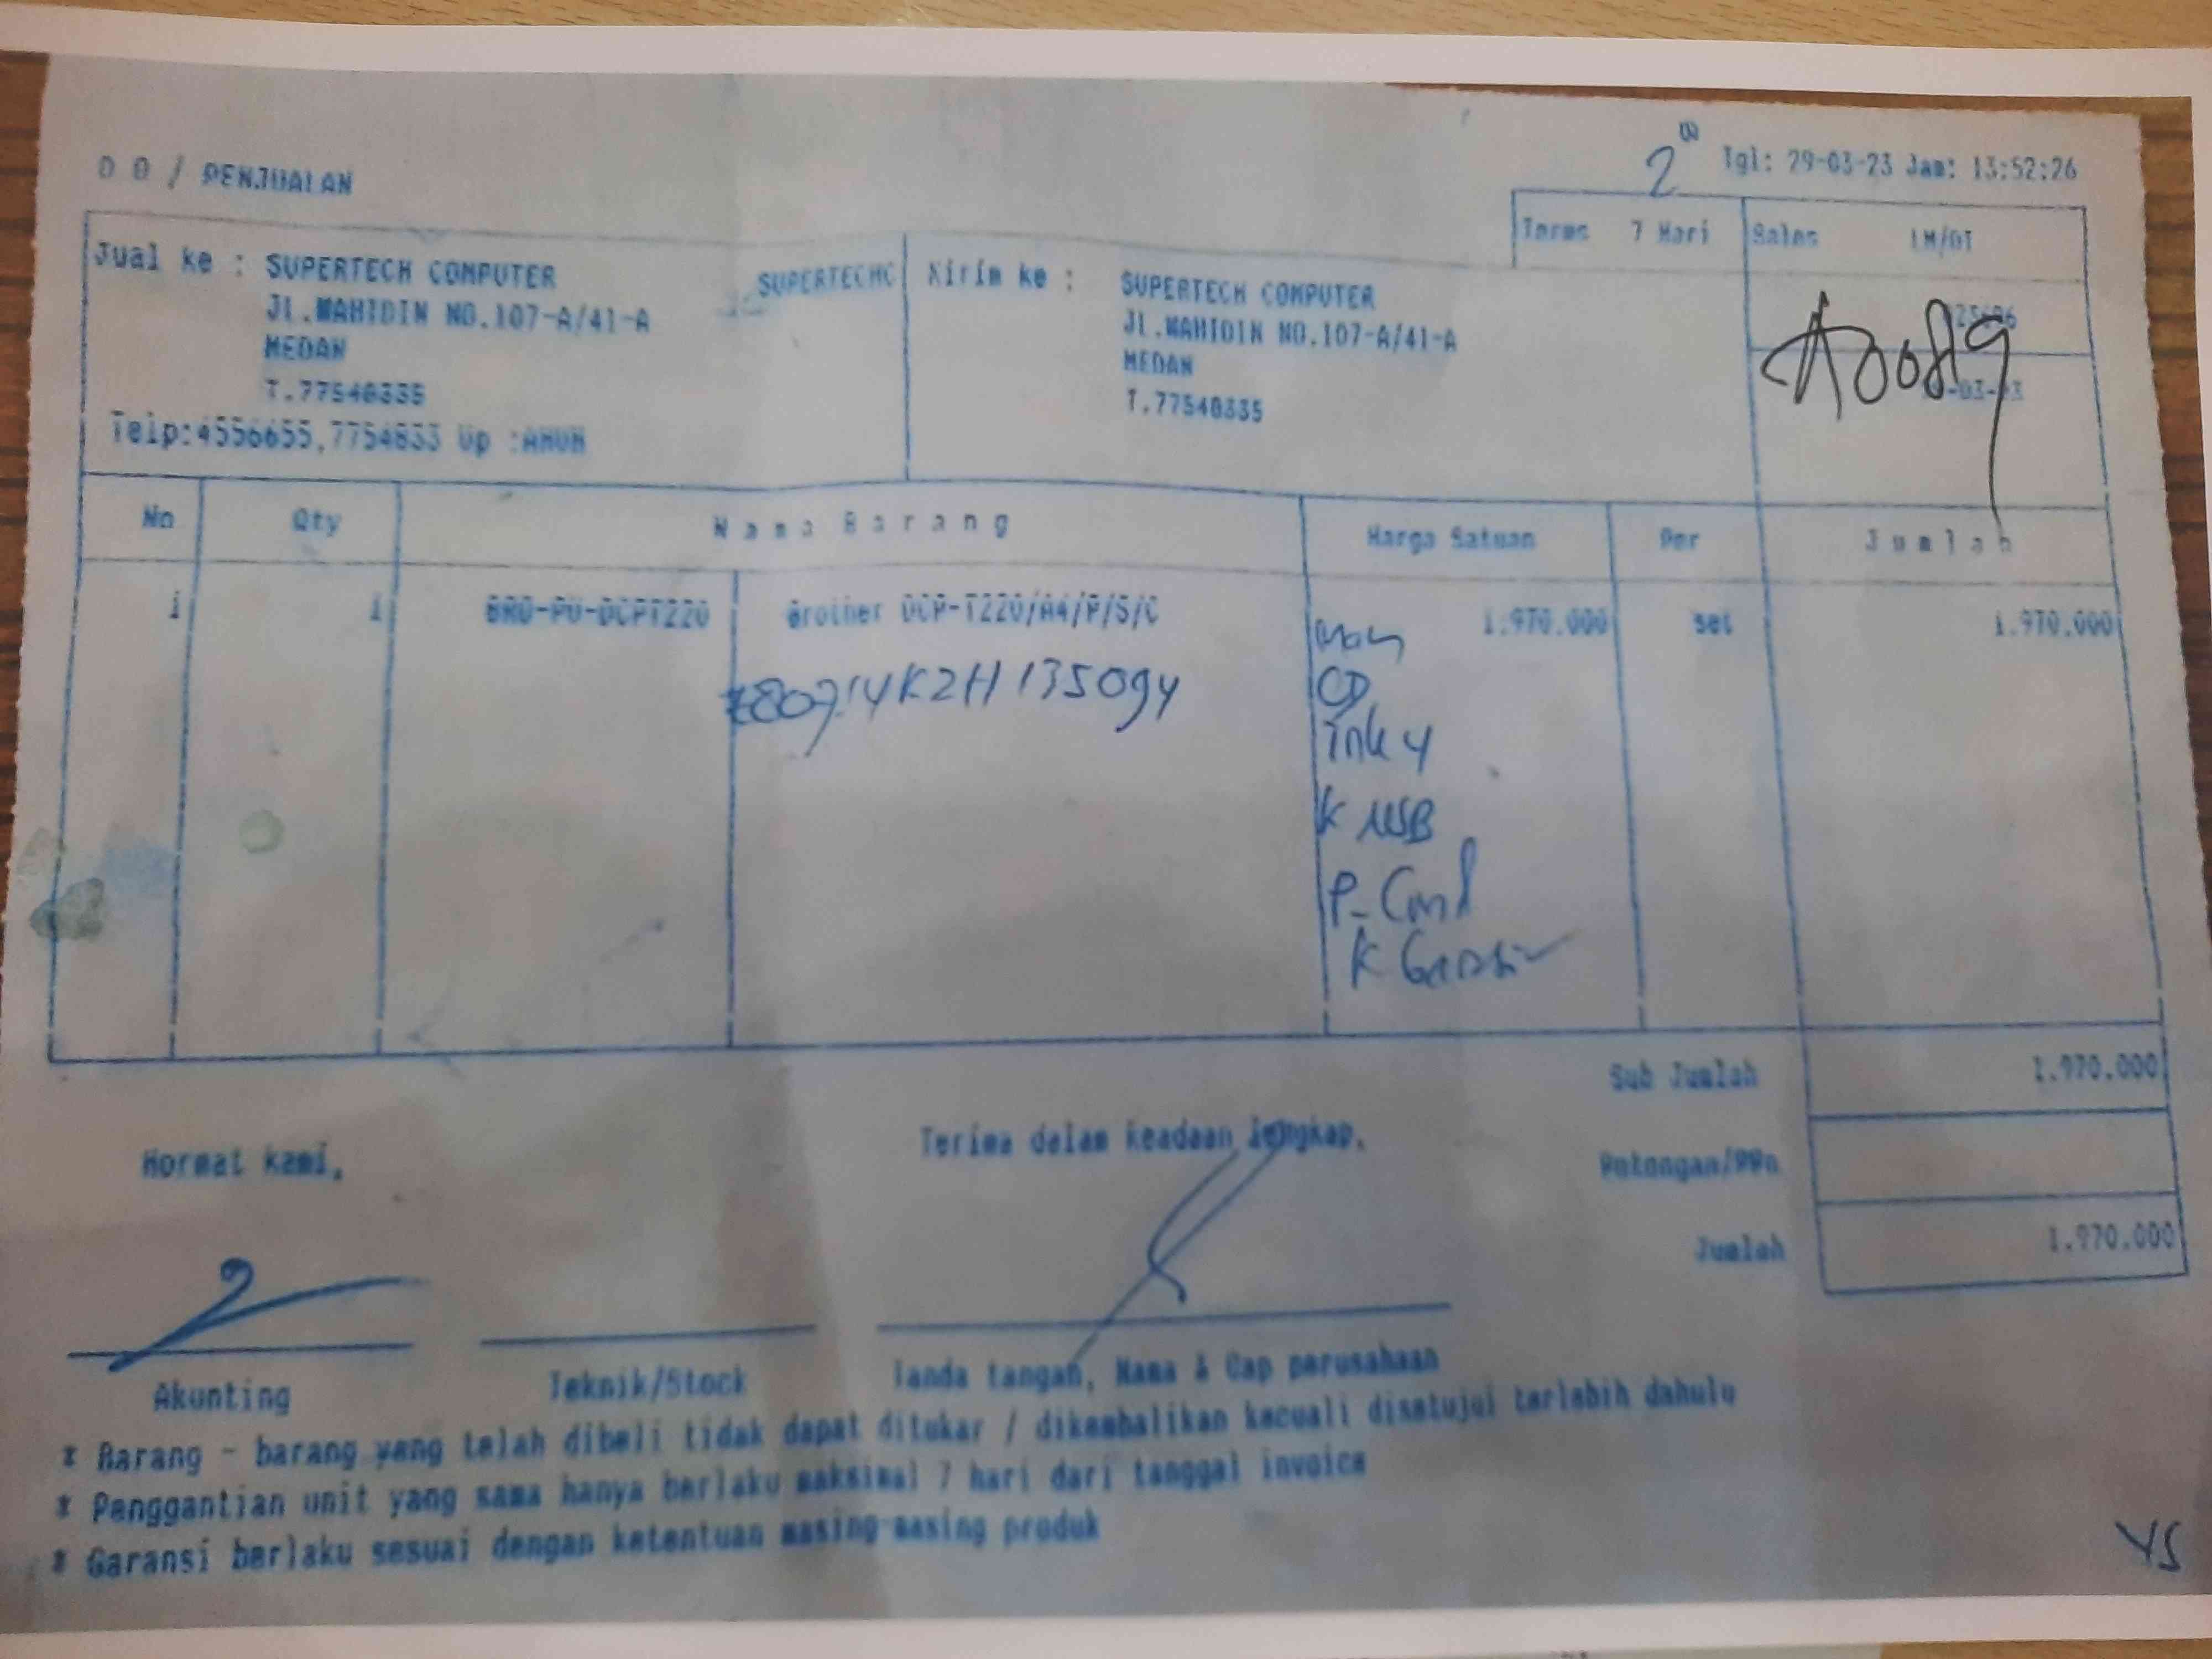 D O / PENJUALAN
Tgl: 29-03-23 Jam: 13:52:26
Terms 7 Hari Sales LM/DT
Jual ke : SUPERTECH COMPUTER SUPERTECHC
JL.WAHIDIN NO.107-A/41-A
MEDAN
T.77548335
Telp:4556655,7754833 Up :AHUN
Kirim ke : SUPERTECH COMPUTER
JL.WAHIDIN NO.107-A/41-A
MEDAN
T.77548335
A0089
No Qty Nama Barang Harga Satuan Per Jumlah
1 1 BRO-PU-DCPT220 Brother DCP-T220/A4/P/S/C 1.970.000 set 1.970.000
K2H135094
CD
ink 4
K USB
K Garansi
Sub Jumlah 1.970.000
Potongan/PPn
Jumlah 1.970.000
Hormat kami,
Terima dalam keadaan lengkap,
Akunting
Teknik/Stock
Tanda tangan, Nama & Cap perusahaan
* Barang - barang yang telah dibeli tidak dapat ditukar / dikembalikan kecuali disetujui terlebih dahulu
* Penggantian unit yang sama hanya berlaku maksimal 7 hari dari tanggal invoice
* Garansi berlaku sesuai dengan ketentuan masing-masing produk
YS